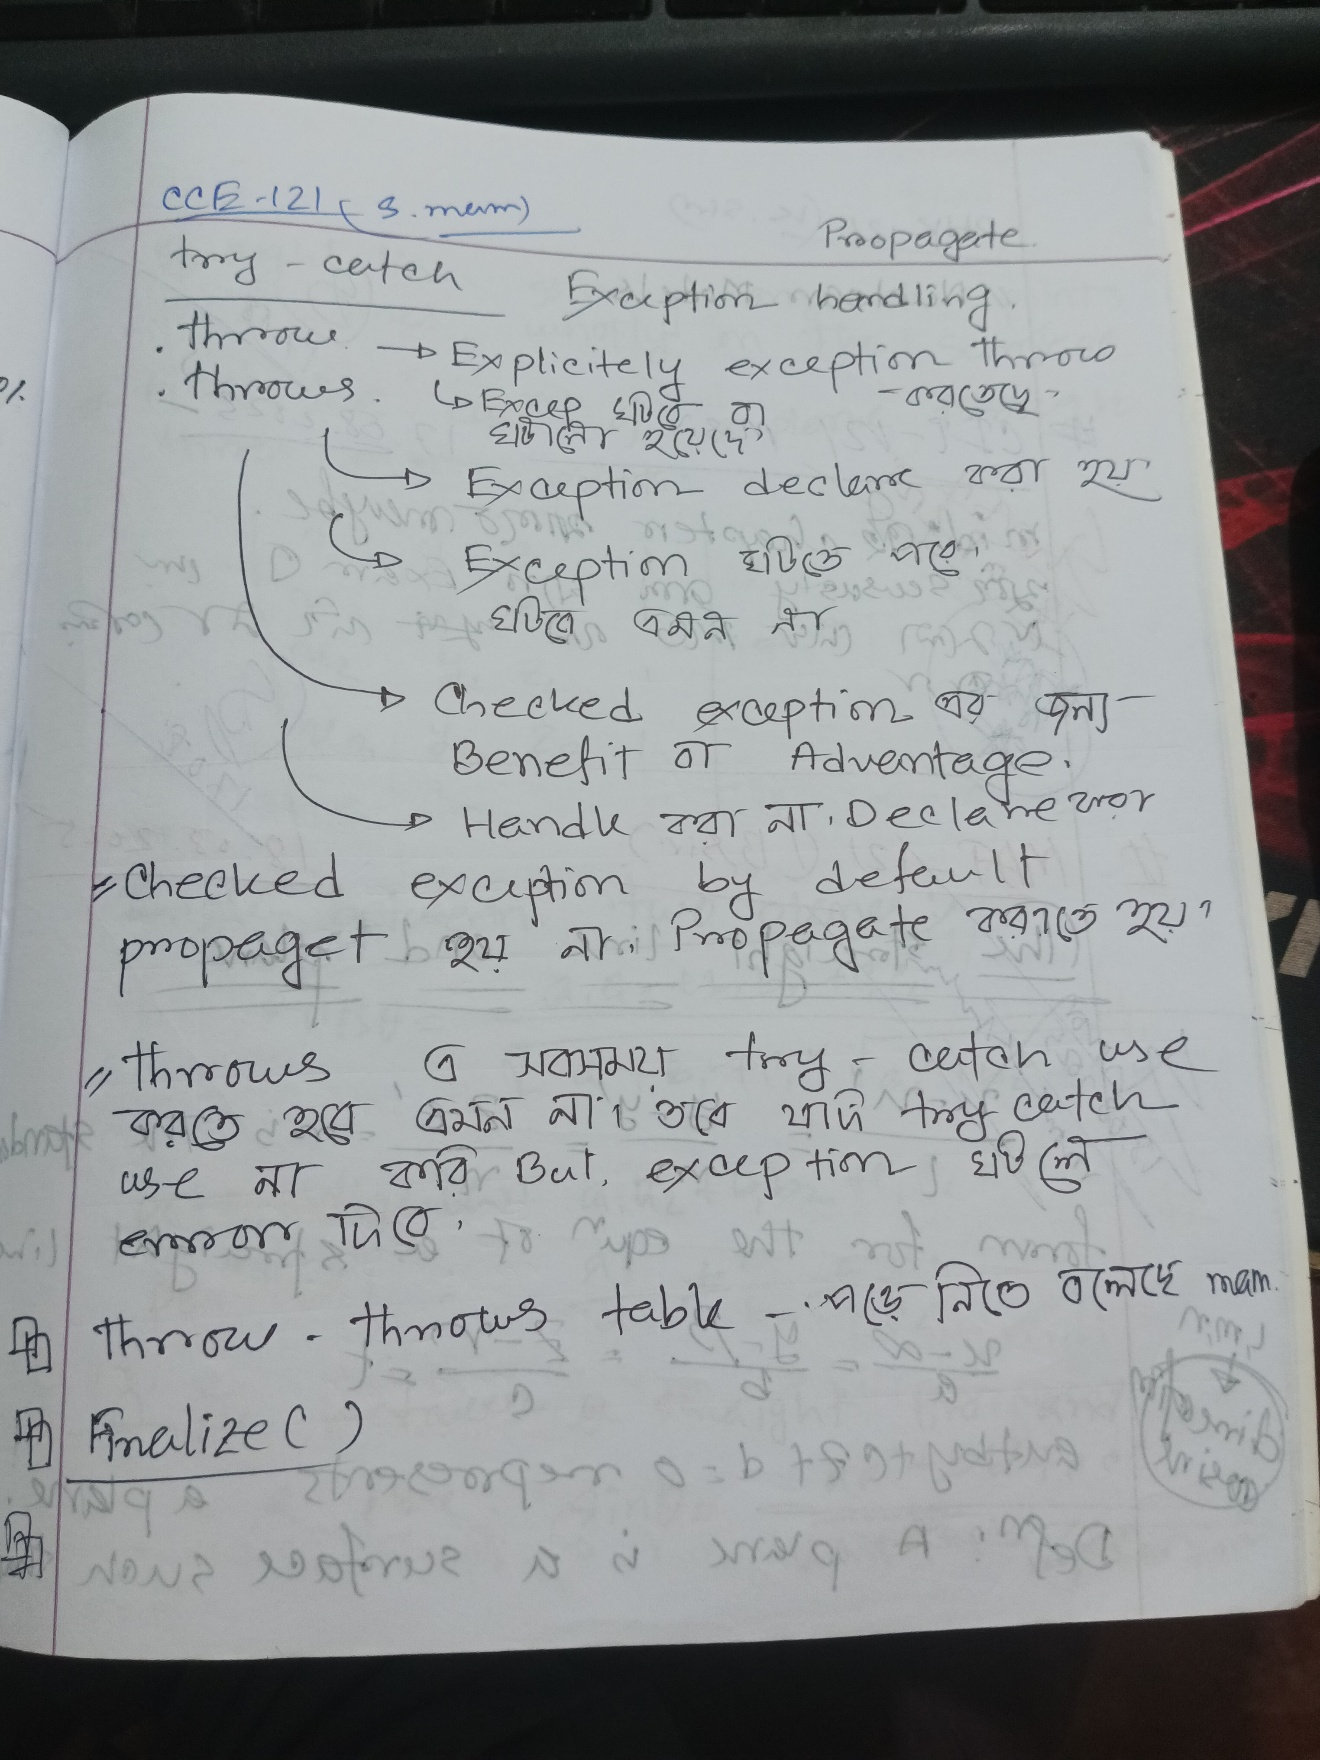 CCE-121 (S. mam)
Propagate
try - catch
Exception handling.
. throw → Explicitely exception throw
- করতেছে
. throws. ↳ Excep ঘটবে বা
ঘটানো হয়েছে।
→ Exception declare করা হয়
→ Exception ঘটতে পারে।
ঘটবে এমন না
→ Checked exception এর জন্য
Benefit বা Advantage.
→ Handle করা না। Declare করা
= Checked exception by default
propaget হয় না। Propagate করাতে হয়।
= throws এ সবসময় try - catch use
করতে হবে এমন না। তবে যদি try catch
use না করি But, exception ঘটলে
error দিবে।
throw - throws table - পড়ে নিতে বলেছে mam.
Finalize( )